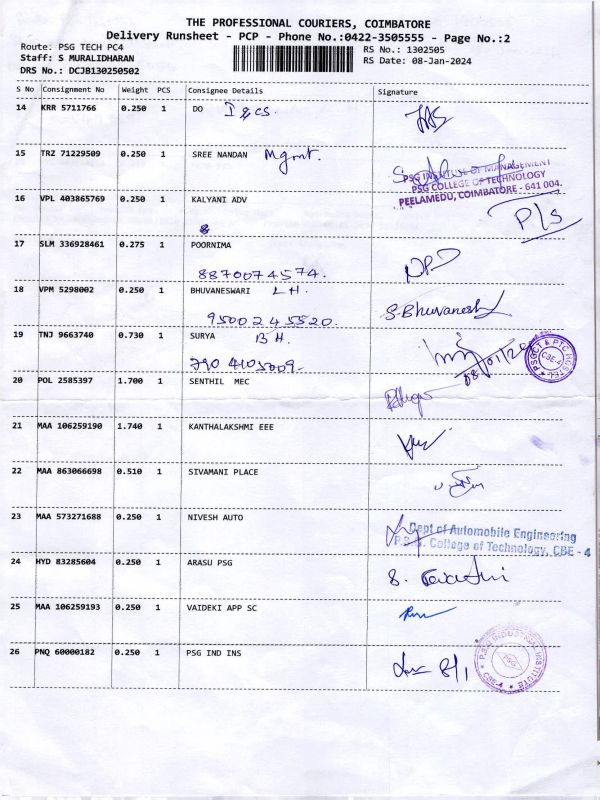 THE PROFESSIONAL COURIERS, COIMBATORE
Delivery Runsheet - PCP - Phone No.:0422-3505555 - Page No.:2
Route: PSG TECH PC4
RS No.: 1302505
Staff: S MURALIDHARAN
RS Date: 08-Jan-2024
DRS No.: DCJB130250502
S No Consignment No Weight PCS Consignee Details Signature
14 KRR 5711766 0.250 1 DO I & CS.
15 TRZ 71229509 0.250 1 SREE NANDAN Mgmt.
PSG INSTITUTE OF MANAGEMENT
PSG COLLEGE OF TECHNOLOGY
PEELAMEDU, COIMBATORE - 641 004.
16 VPL 403865769 0.250 1 KALYANI ADV
P/S
17 SLM 336928461 0.275 1 POORNIMA
8870074574.
18 VPM 5298002 0.250 1 BHUVANESWARI L H. S.Bhuvanesh
9500245520.
19 TNJ 9663740 0.730 1 SURYA B H.
790 4105009.
PSGCT & PTC HOSTEL
CBE-4
20 POL 2585397 1.700 1 SENTHIL MEC
21 MAA 106259190 1.740 1 KANTHALAKSHMI EEE
22 MAA 863066698 0.510 1 SIVAMANI PLACE
23 MAA 573271688 0.250 1 NIVESH AUTO
Dept of Automobile Engineering
P.S.G. College of Technology, CBE - 4
24 HYD 83285604 0.250 1 ARASU PSG
25 MAA 106259193 0.250 1 VAIDEKI APP SC
26 PNQ 60000182 0.250 1 PSG IND INS 8/1
P.S.G INDUSTRIAL INSTITUTE
PSG
CBE-4